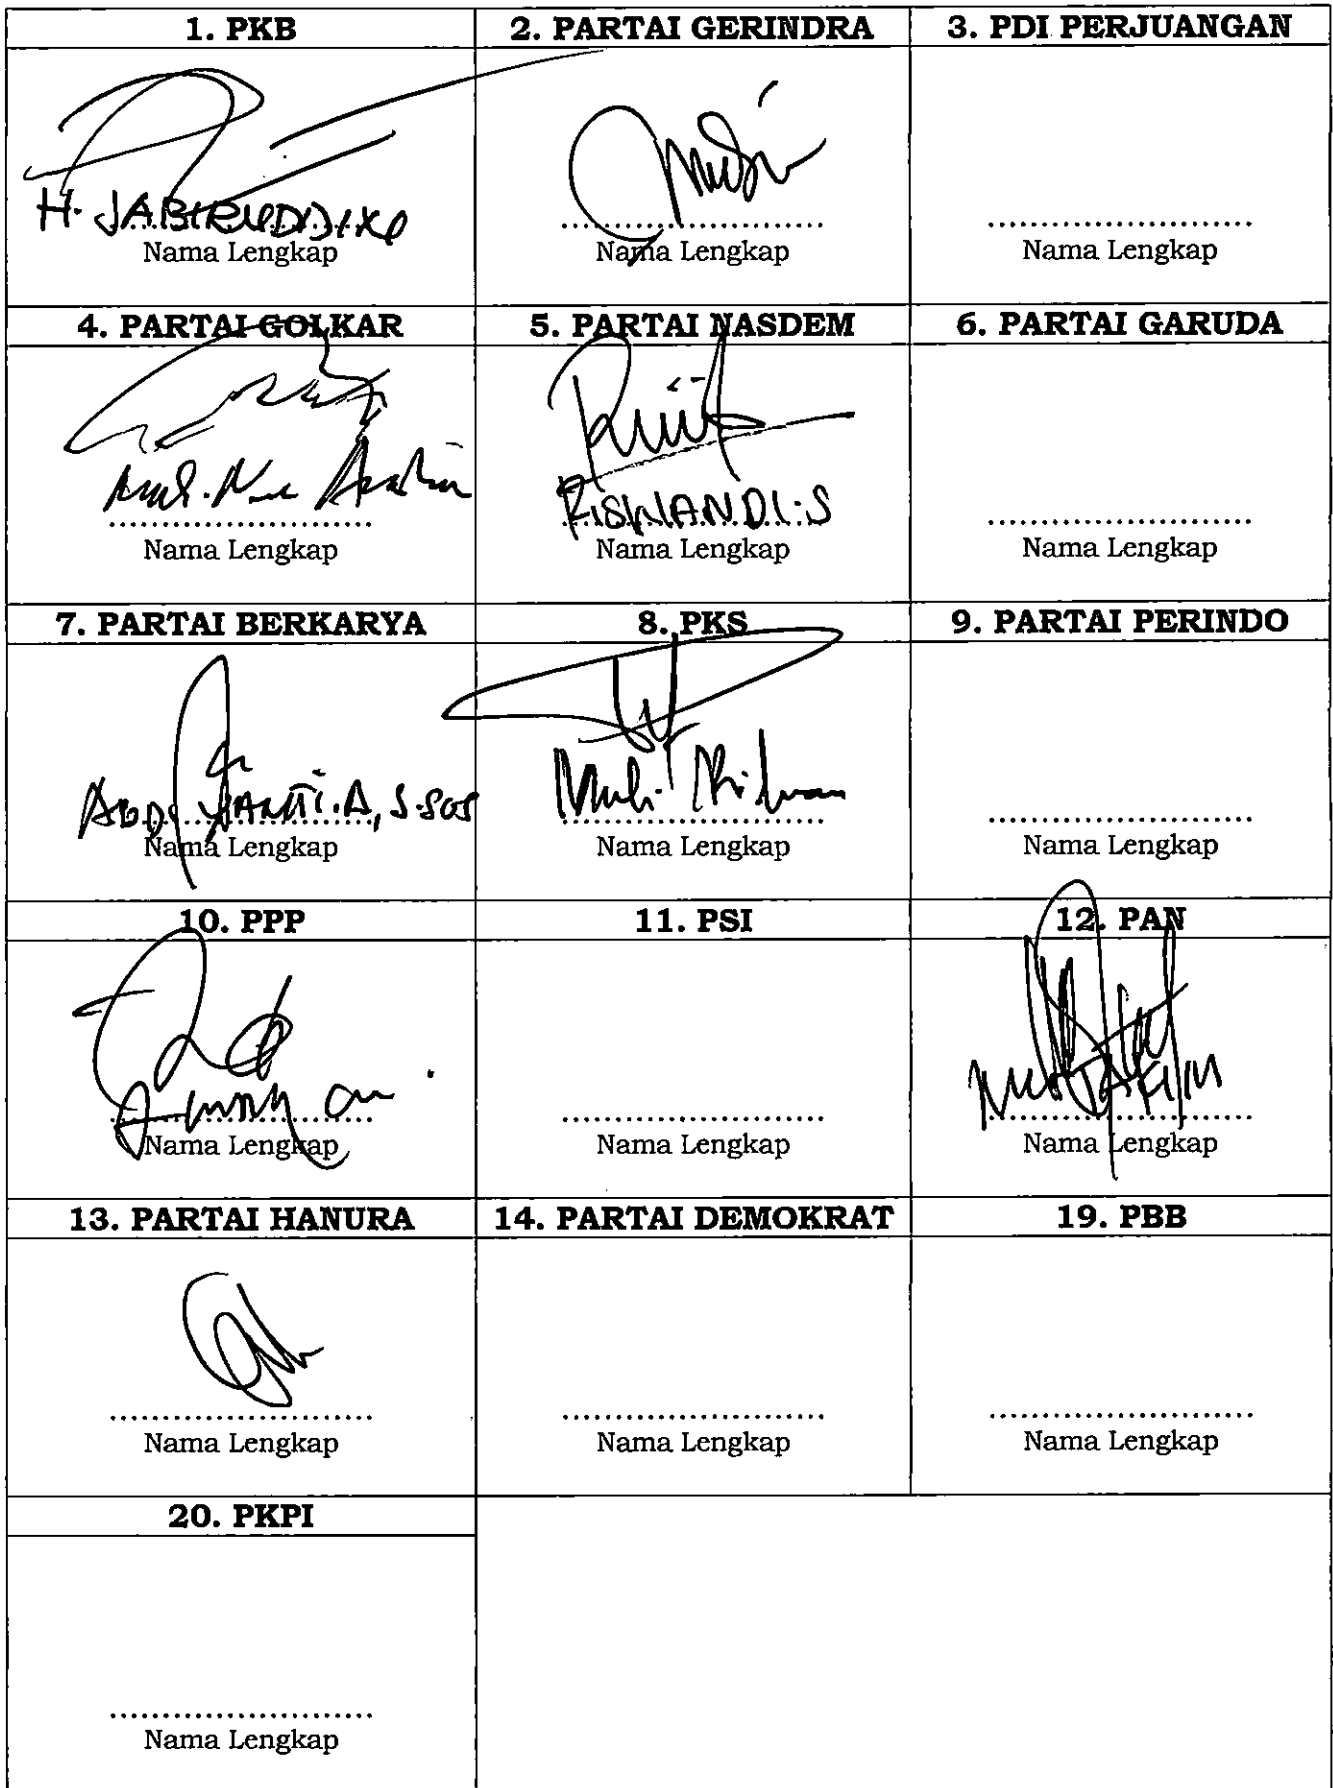 1. PKB
2. PARTAI GERINDRA
3. PDI PERJUANGAN
H. JABIRUDDIN
Nama Lengkap
Nama Lengkap
Nama Lengkap
4. PARTAI GOLKAR
5. PARTAI NASDEM
6. PARTAI GARUDA
Muh. Nur
RISWANDI.S
Nama Lengkap
Nama Lengkap
Nama Lengkap
7. PARTAI BERKARYA
8. PKS
9. PARTAI PERINDO
A, S.Sos
Muh. Ridwan
Nama Lengkap
Nama Lengkap
Nama Lengkap
10. PPP
11. PSI
12. PAN
Nama Lengkap
Nama Lengkap
Nama Lengkap
13. PARTAI HANURA
14. PARTAI DEMOKRAT
19. PBB
Nama Lengkap
Nama Lengkap
Nama Lengkap
20. PKPI
Nama Lengkap